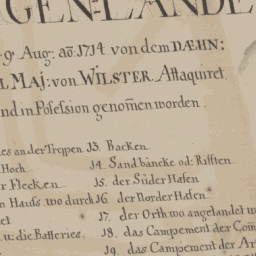 GEN=LANDE
9 Aug: aō: 1714 von dem DÆHN:
L MAJ: von WILSTER Attaquiret
nd in Posession genom̄en worden.
es an der Treppen 13. Backen
Hoch 14. Sandbäncke od: Riffen
r Flecken 15. der Süder Hafen
n Hauß wo durch 16. der Norder Hafen
et 17. der Orth wo angelandet w
u: die Batteries. 18. das Campement der Com
19. das Campement der Ar